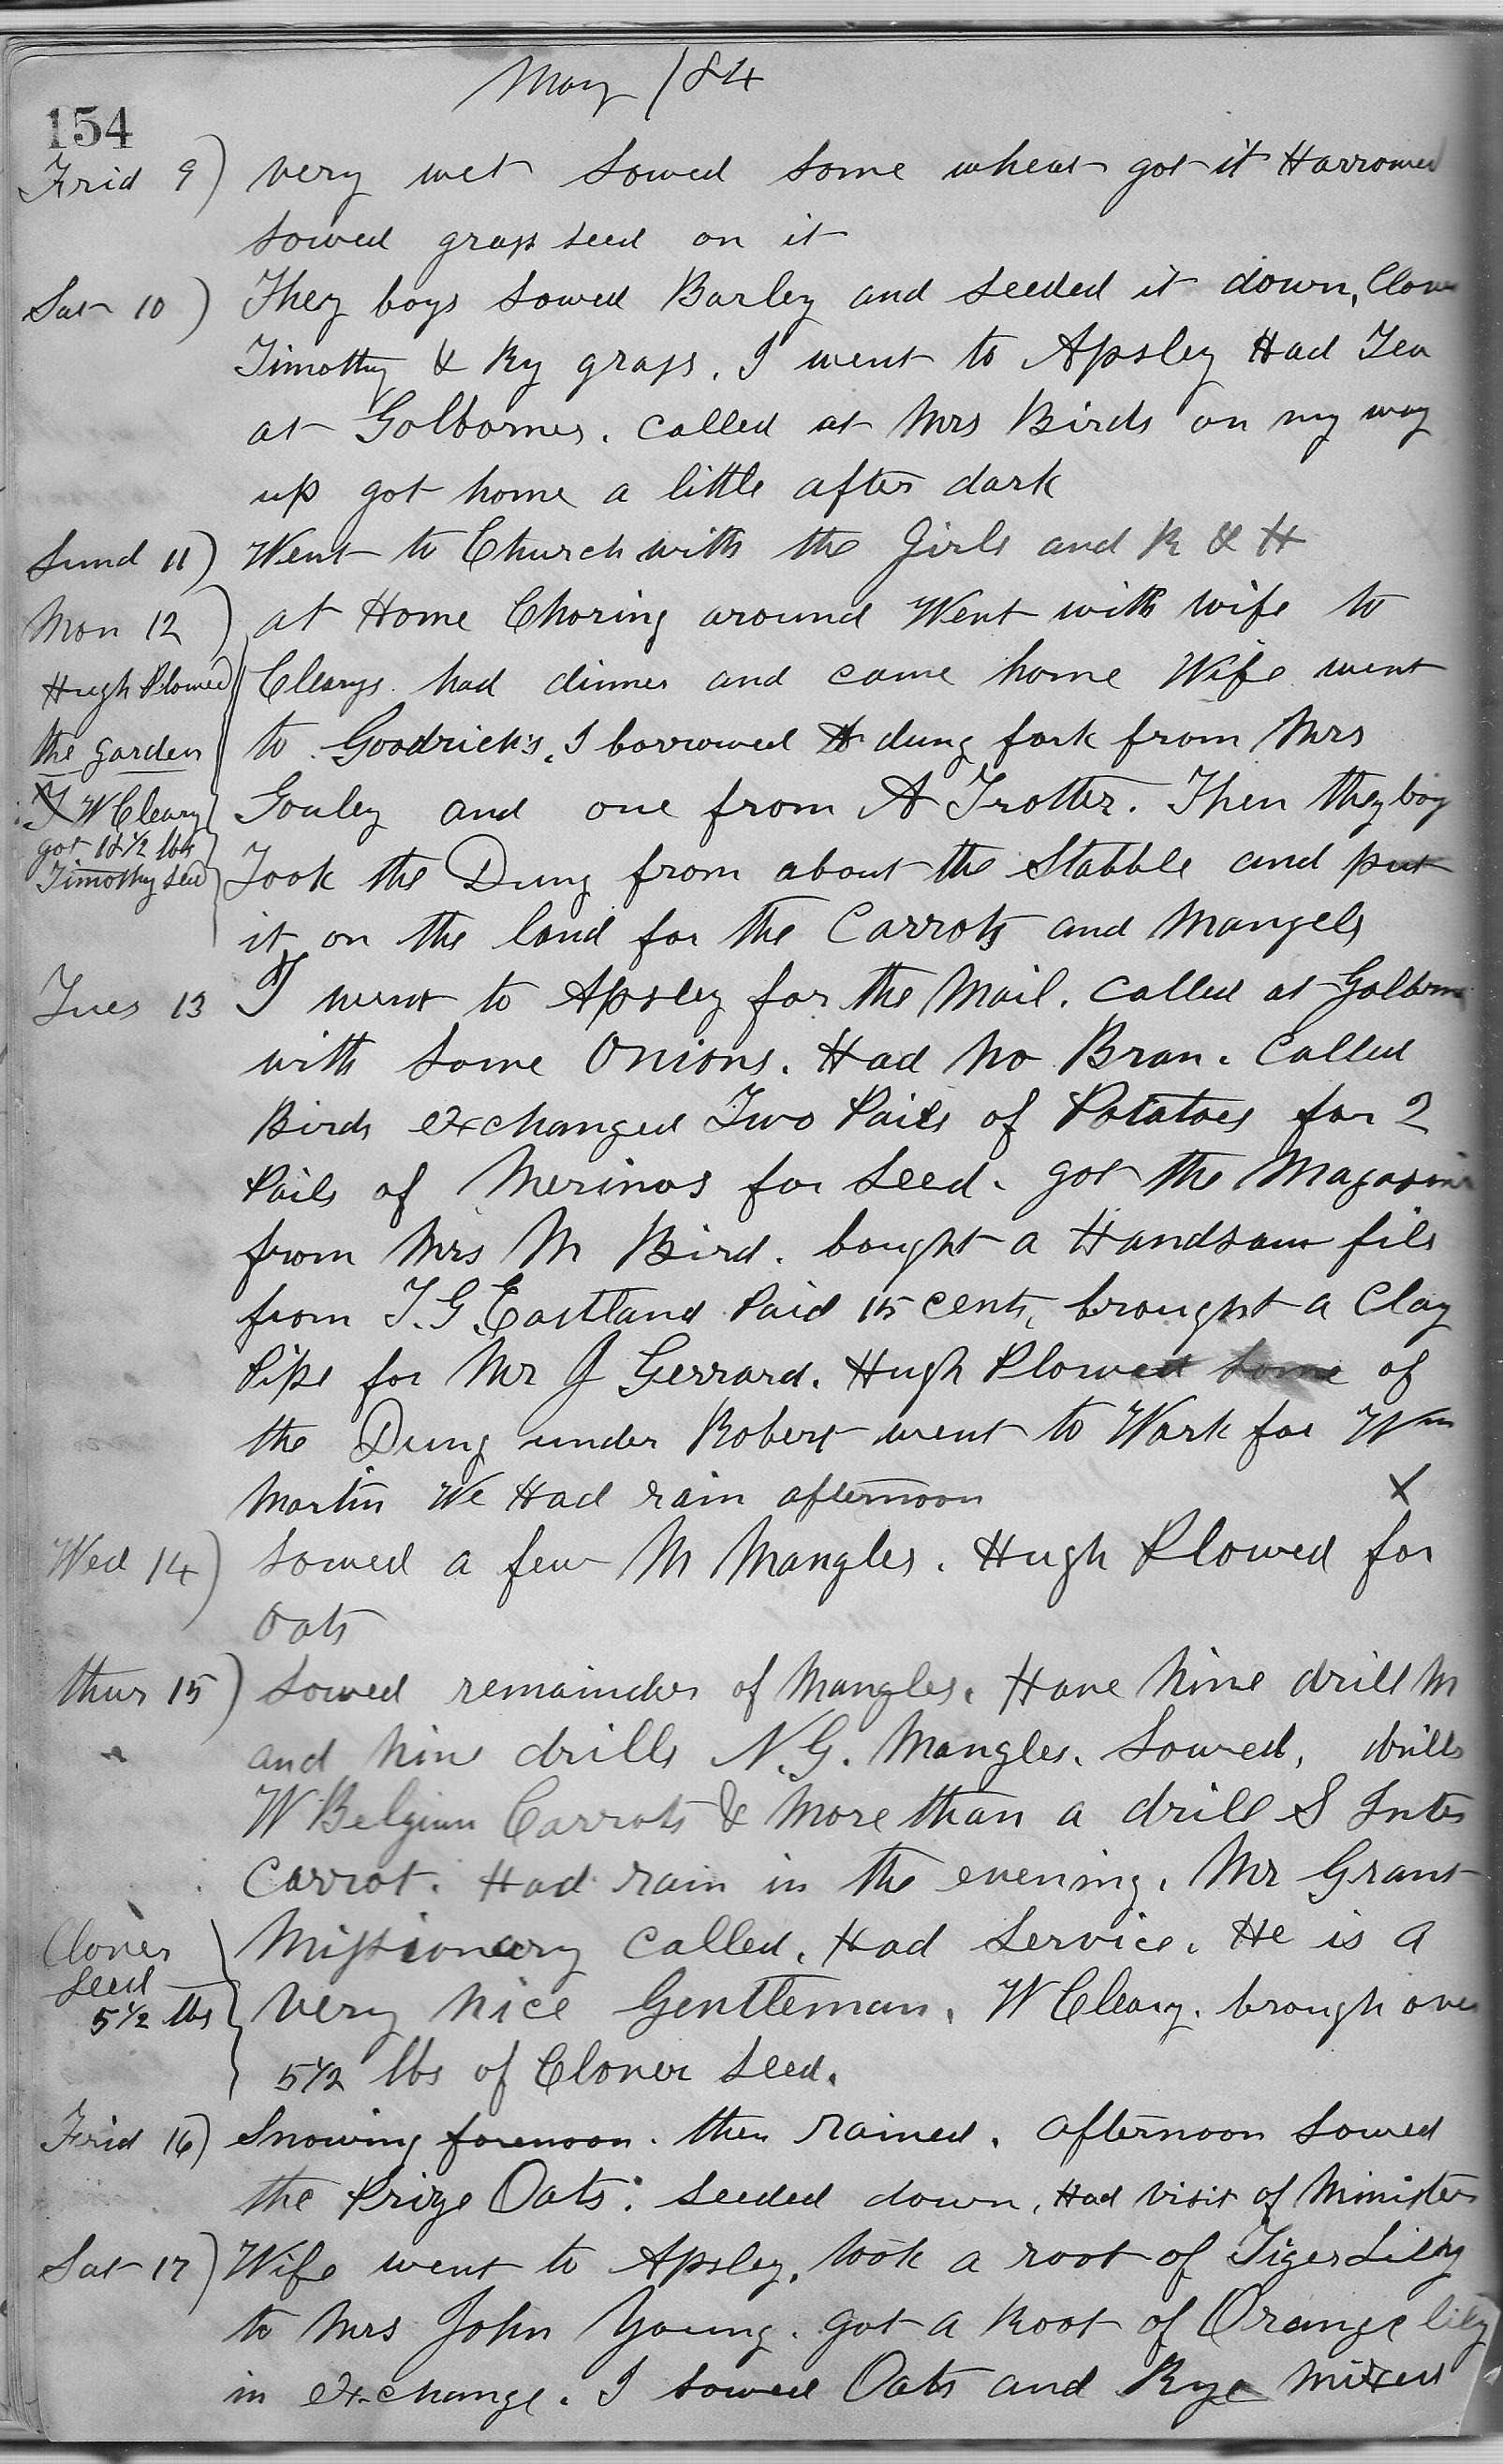 May /84
154
Frid 9) very wet sowed some wheat got it Harrowed
sowed grass seed on it
Sat 10) They boys sowed Barley and seeded it down, Clover
Timothy & Ry grass. I went to Apsley Had Tea
at Golbornes. called at Mrs Birds on my way
up got home a little after dark
Sund 11) Went to Church with the Girls and R & H
Mon 12) at Home Choring around Went with wife to
Hugh Plowed Clearys had dinner and came home Wife went
the garden to Goodrich's. I borrowed A dung fork from Mrs
W Cleary Gouley and one from A Trotter. Then they boy
got 12½ lbs
Timothy seed Took the Dung from about the Stabble and put
it on the land for the Carrots and Mangels
Tues 13 I went to Apsley for the Mail. called at Golborne
with some Onions. Had no Bran. Called
Birds exchanged Two Pails of Potatoes for 2
Pails of Merinos for seed. got the Magazine
from Mrs M Bird. bought a Handsaw file
from T. G Eastland Paid 15 cents, brought a Clay
Pipe for Mr J Gerrard. Hugh Plowed some of
the Dung under Robert went to Work for Wm
Martin We Had rain afternoon X
Wed 14) Sowed a few M Mangles. Hugh Plowed for
Oats
thur 15) Sowed remainder of Mangles. Have Nine drill M
and Nine drills N.G. Mangles. Sowed, drills
W Belgium Carrots & More than a drill S Inter
Carrot. Had rain in the evening. Mr Grant
Clover Missionary called. Had Service. He is a
Seed
5½ lbs very Nice Gentleman. W Cleary. brough over
5½ lbs of Clover seed.
Frid 16) Snowing forenoon. then rained. afternoon sowed
the Prize Oats. seeded down. Had visit of Minister
Sat 17) Wife went to Apsley. took a root of Tiger Lilly
to Mrs John Young. got a Root of Orange lily
in exchange. I sowed Oats and Rye mixed